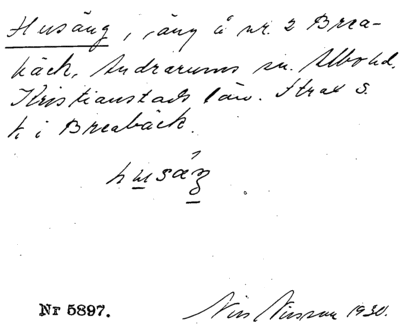 Husäng, äng å nr. 2 Brea-
bäck, Andrarums sn. Albo hd.
Kristianstads län. Strax S.
k i Breabäck.
husáŋ
Nr 5897.
Nils Nilsson 1930.